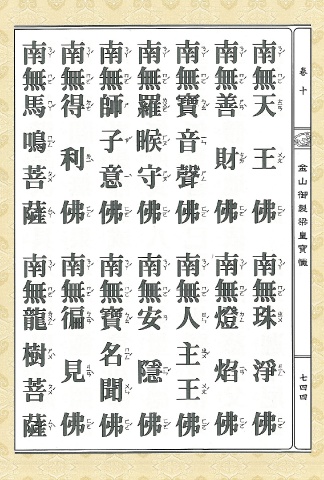 卷十
金山御製梁皇寶懺
七四四
南無天王佛
南無珠淨佛
南無善財佛
南無燈焰佛
南無寶音聲佛
南無人主王佛
南無羅睺守佛
南無安隱佛
南無師子意佛
南無寶名聞佛
南無得利佛
南無徧見佛
南無馬鳴菩薩
南無龍樹菩薩